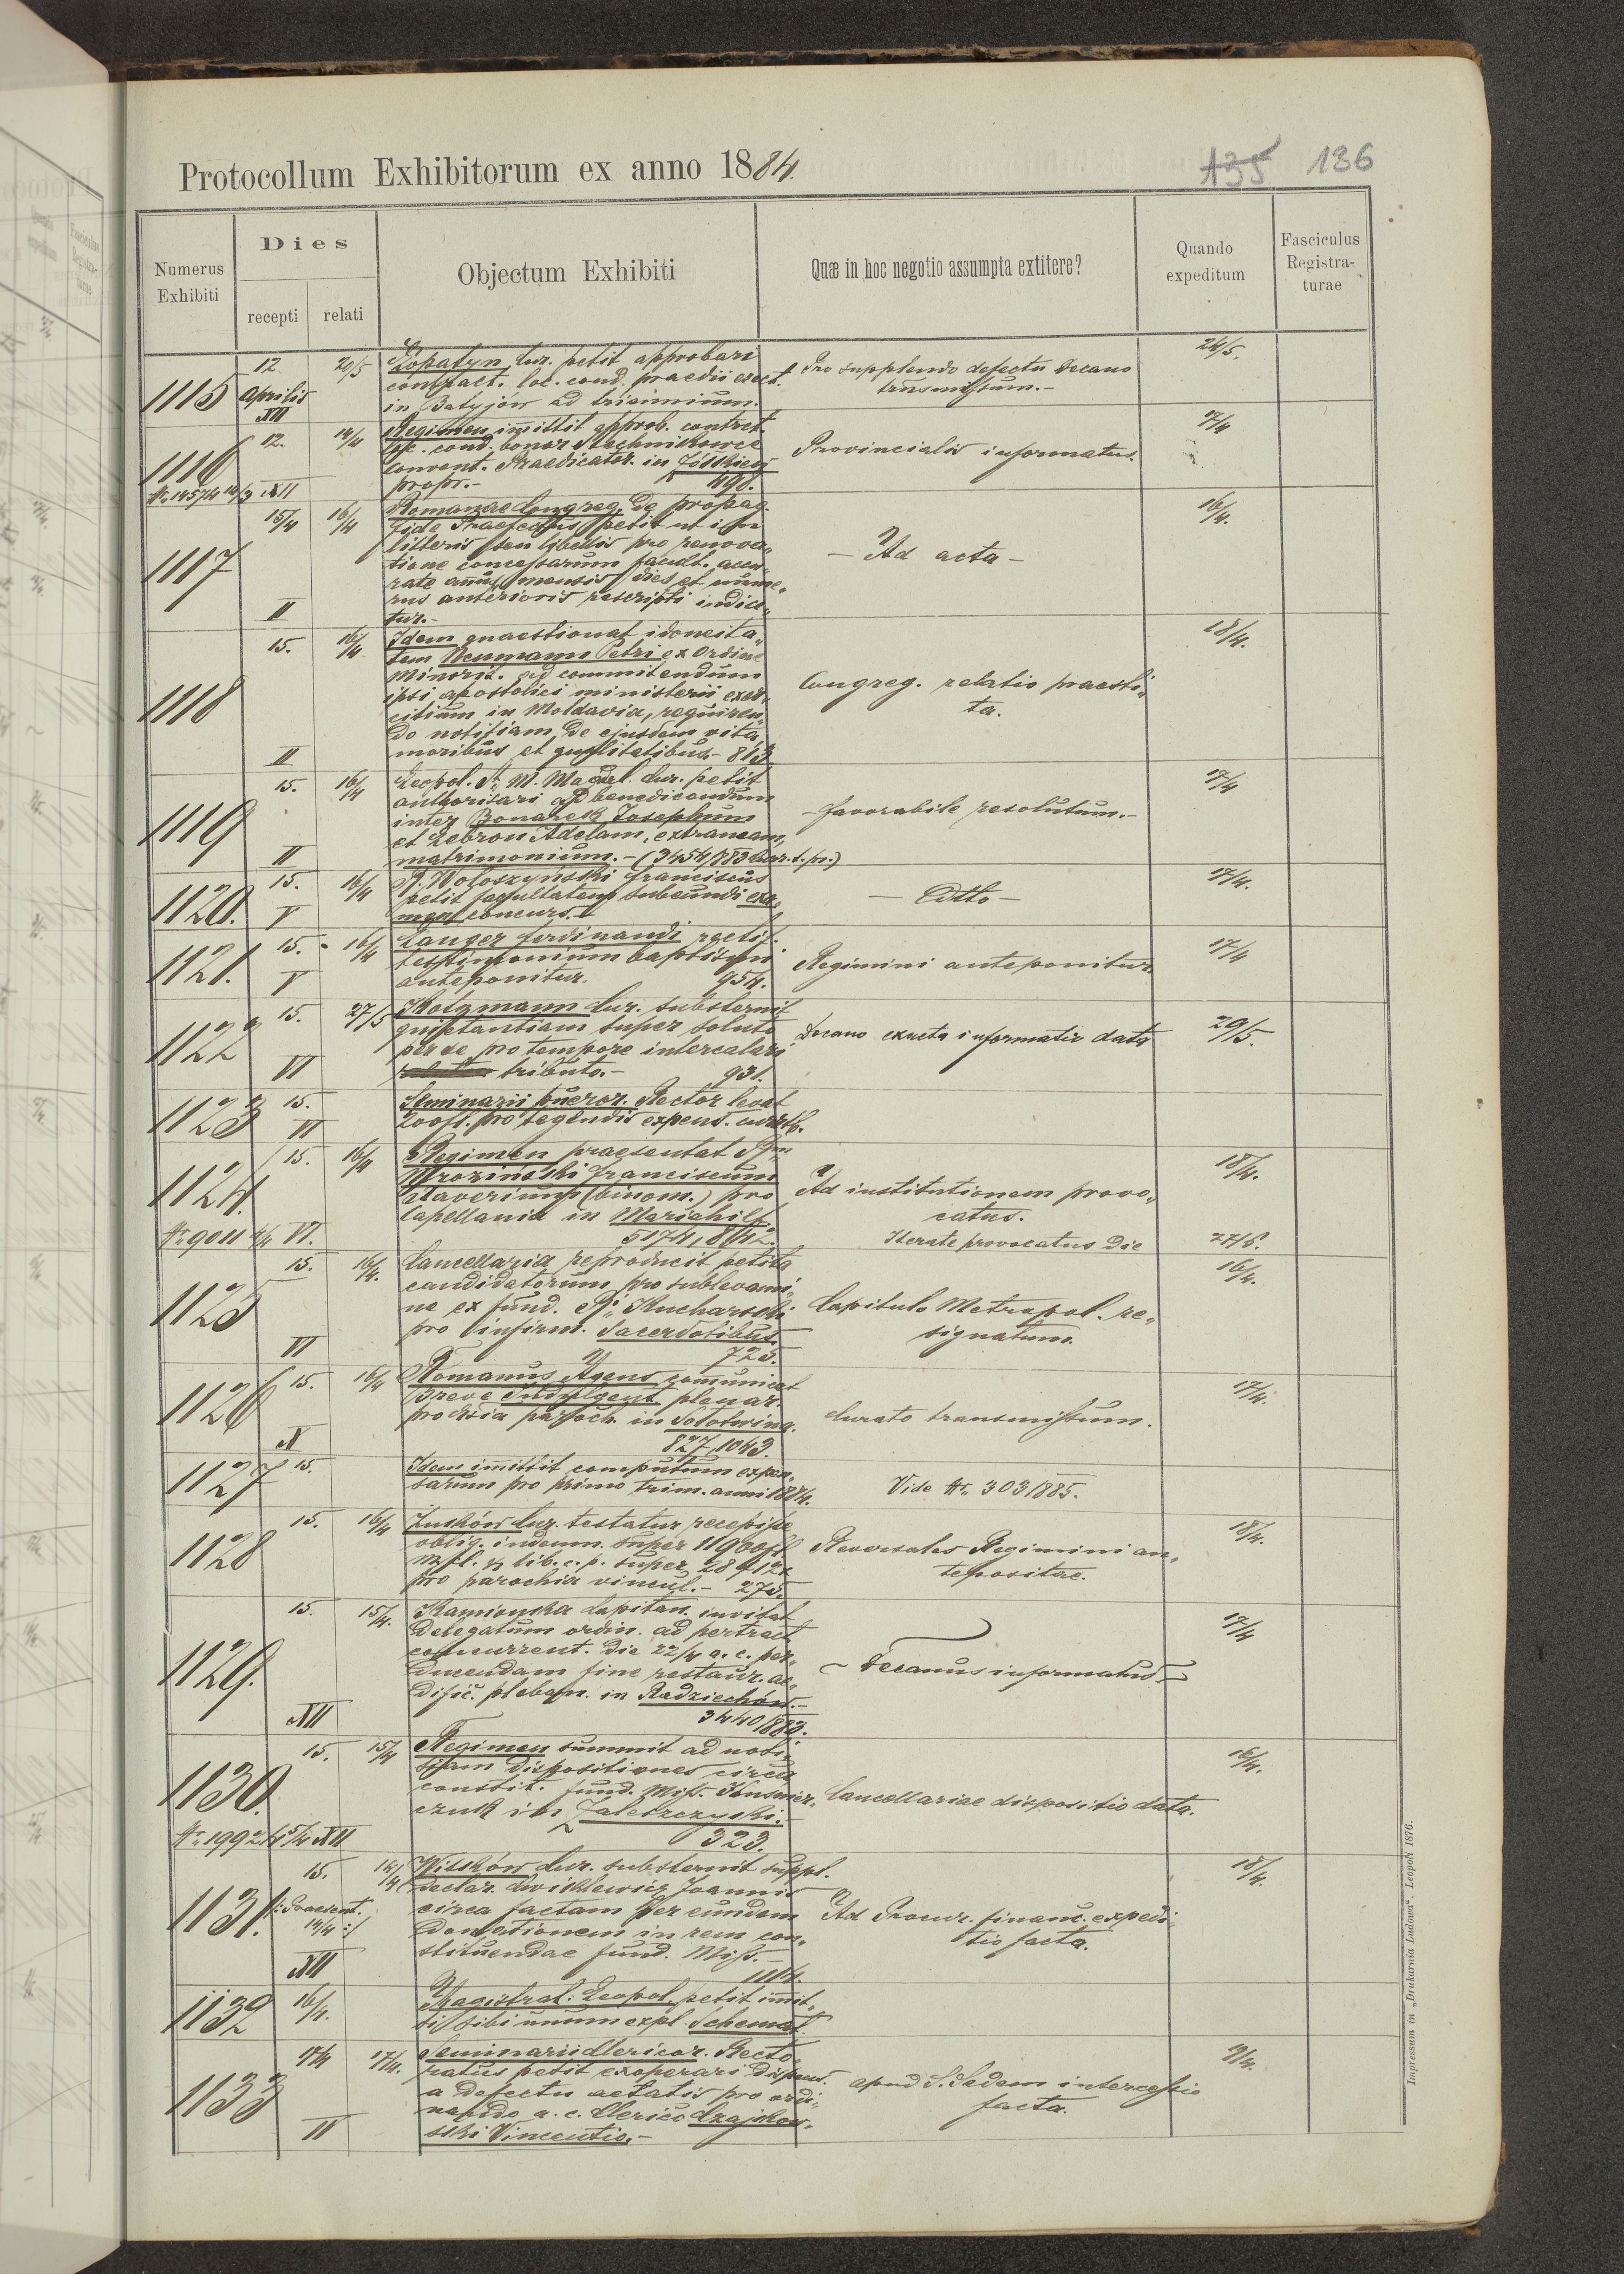 Protocollum Exhibitorum ex anno 1884.
135 136
Numerus Exhibiti
Dies
recepti
relati
Objectum Exhibiti
Quæ in hoc negotio assumpta extitere?
Quando expeditum
Fasciculus Registra-
turae
1115
12 Aprilis
XII
20/5
Łopatyn Cur. petit approbari
contract. loc. cond. praedii erect.
in Batyjów ad triennium.
Pro supplendo defectu Decano
transmissum.-
24/5.
1116
№ 14574 12/3 XII
12.
14/4
Regimen imittit approb. contrct.
loc. cond. bonor
convent. Praedicator. in Żółkiew
propr.- 498.
Provincialis informatus.
17/4
1117
15/4
II
16/4
Romanae Congreg. de propag.
fide Praefectus petit ut in
litteris seu libellis pro renova„
tione concessarum facult. accu„
rate annus mensis dies et nume„
rus anterioris rescripti indice„
tur.-
- Ad acta -
16/4.
1118
15.
II
16/4
Idem quaestionat idoneita„
tem Neumann Petri ex Ordine
Minorit. ad committendum
ipsi apostolici ministerii exer„
citium in Moldavia, requiren„
do notitiam de ejusdem vita,
moribus et qualitatibus.- 813
Congreg. relatio praesti„
ta.
18/4.
1119
15.
II
16/4
Leopol. St. M. Magdal. Cur. petit
authorisari ad benedicendum
inter Bonarek Josephum
et Zebron Adelam, extraneam,
matrimonium.- (3454/883
- favorabile resolutum.-
17/4
1120.
15.
V
16/4
R. Wołoszyński Franciscus
petit facultatem subeundi exa„
men concurs.
- Ditto -
17/4.
1121.
15.
V
16/4
Langer Ferdinandi rectif.
testimonium baptismi
anteponitur. 954.
Regimini anteponitur
17/4
1122
15.
VI
27/5
Kotzmann Cur. substernit
quietantiam super soluto
per se pro tempore intercalari
tributo.- 931.
Decano exacta informatio data
29/5.
1123
15.
VI
Seminarii pueror. Rector levat
200fl. pro tegendis expens.
1124.
№ 9011 4/4 VI.
15.
16/4
Regimen praesentat Rm
Mroziński Franciscum
Xaverium (binom.) pro
Capellania in Mariahilf
5174, 8/12.
Ad institutionem provo„
catus.
Iterate provocatus die
18/4.
27/6.
1125
15.
VI
16/4.
Cancellaria reproducit petita
candidatorum pro sublevami„
ne ex fund. Kucharski
pro infirm. Sacerdotibus.
725.
Capitulo Metropol. re„
signatum.
16/4.
1126
15.
X
16/4
Romanus Agens comunicat
breve Indulgent. plenar.
pro Ecsia paroch. in Sołotwina.
827, 1043.
Curato transmissum.
17/4.
1127
15.
Idem imittit computum expen„
sarum pro primo trim. anni 1884.
Vide № 303/885.
1128
15.
16/4
Żuków Cur. testatur recepisse
oblig. indemn. super 11900fl
m. fl. lib. c. p. super
pro parochia vincul.- 275.
Reversales Regimini an„
tepositae.
18/4.
1129.
15.
XII
15/4.
Kamionka Capitan. invitat
Delegatum ordin. ad pertract.
concurrent. die 22/4 a. c. per„
ducendam fine restaur. ae„
dific. pleban. in Radziechów.-
3440/883.
- Decanus informatus.-
17/4
1130.
№ 19924 15/4 XII
15.
15/4
Regimen summit ad noti„
tiam dispositiones circa
constit. fund. Miss.
in Zaleszczyki.-
323.
Cancellariae dispositio data.
16/4.
1131.
15.
/: Praesent.
14/4 :/
XII
14/4
Witków Cur. substernit suppl.
declar. Ćwiklewicz Joannis
circa factam per eundem
donationem in rem con„
stituendae fund. Miss.-
1114.
Ad Procur. financ. expedi„
tio facta.
18/4.
1132
16/4.
Magistrat. Leopol. petit imit„
ti sibi unum expl. Schemat.
1133
17/4
IV
17/4.
Seminarii Clericor. Recto„
ratus petit exoperari dispens.
a defectu aetatis pro ordi„
nando a. c. Clerico Czajkow„
ski Vincentio.-
apud S. Sedem intercessio
facta.
Impressum in „Drukarnia Ludowa“. Leopoli 1876.